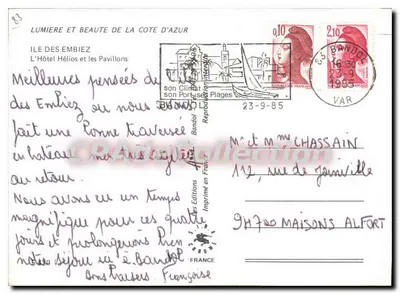 LUMIERE ET BEAUTE DE LA COTE D'AZUR
ILE DES EMBIEZ
L'Hôtel Hélios et les Pavillons
Meilleures pensées de l'île
des Embiez où nous avons
fait une bonne traversée
en bateau mer
au retour.
Nous avons eu un temps
magnifique pour ces quatre
jours et prolongerons bien
notre séjour ici à Bandol
bons baisers Françoise
son
son Port ses Plages
23-9-85
0,10
2,10
83 BANDOL
16 H 30
23-9
1985
VAR
Mr et Mme CHASSAIN
112, rue de Joinville
94700 MAISONS ALFORT
Bandol
Reproduction interdite
Editions
Imprimé en France
FRANCE